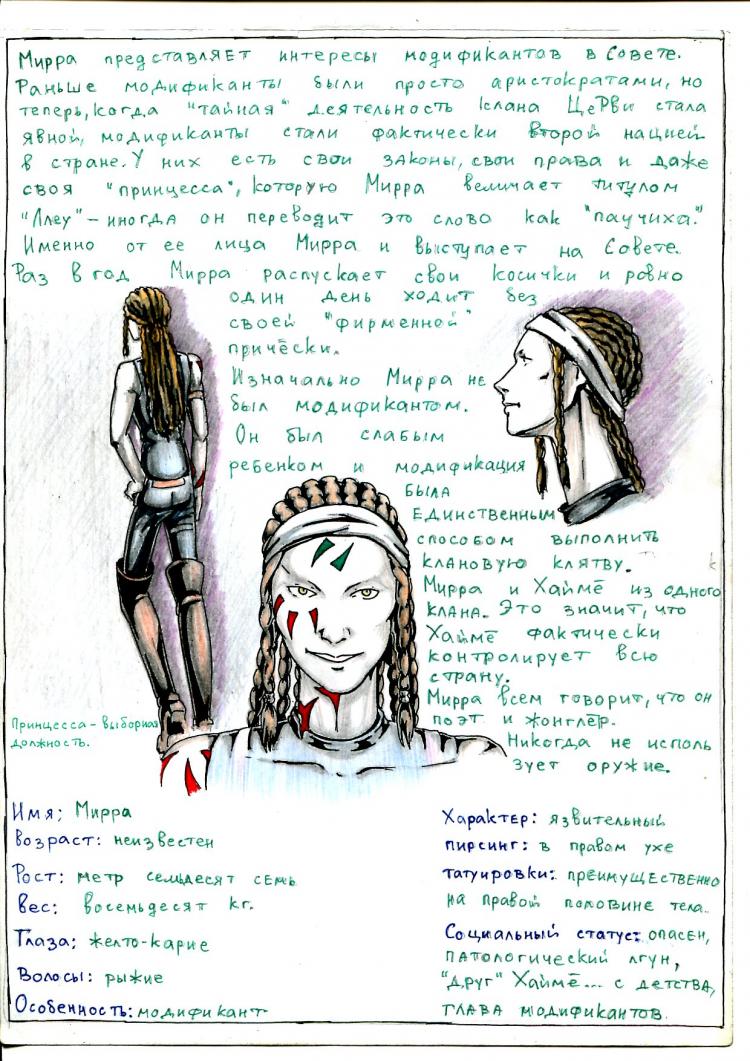 Мирра представляет интересы модификантов в Совете.
Раньше модификанты были просто аристократами, но
теперь, когда "тайная" деятельность клана ЦеРви стала
явной, модификанты стали фактически второй нацией
в стране. У них есть свои законы, свои права и даже
своя "принцесса", которую Мирра величает титулом
"Ллеу" – иногда он переводит это слово как "паучиха".
Именно от ее лица Мирра и выступает на Совете.
Раз в год Мирра распускает свои косички и ровно
один день ходит без
своей "фирменной"
причёски.
Изначально Мирра не
был модификантом.
Он был слабым
ребенком и модификация
была
единственным
способом выполнить
клановую клятву.
Мирра и Хаймё из одного
клана. Это значит, что
Хаймё фактически
контролирует всю
страну.
Мирра всем говорит, что он
поэт и жонглёр.
Никогда не исполь
зует оружие.
Принцесса – выборная
должность.
Имя: Мирра
Возраст: неизвестен
Рост: метр семьдесят семь
Вес: восемьдесят кг.
Глаза: желто-карие
Волосы: рыжие
Особенность: модификант
Характер: язвительный
пирсинг: в правом ухе
татуировки: преимущественно
на правой половине тела.
Социальный статус: опасен,
патологический лгун,
"друг" Хаймё... с детства,
глава модификантов.